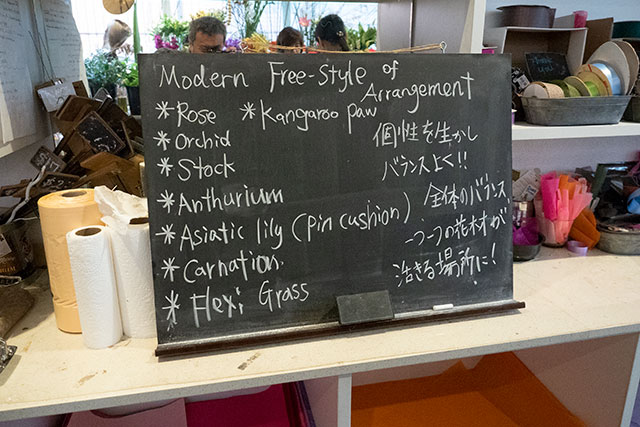 Modern Free-Style of Arrangement
*Rose *Kangaroo paw
*Orchid
*Stock
*Anthurium
*Asiatic lily (pin cushion)
*Carnation.
*Flexi Grass
個性を生かし
バランスよく!!
全体のバランス
一つ一つの花材が
活きる場所に!